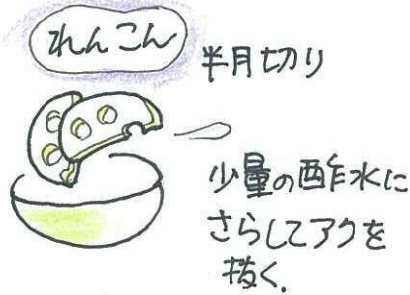 れんこん
半月切り
少量の酢水に
さらしてアクを
抜く.